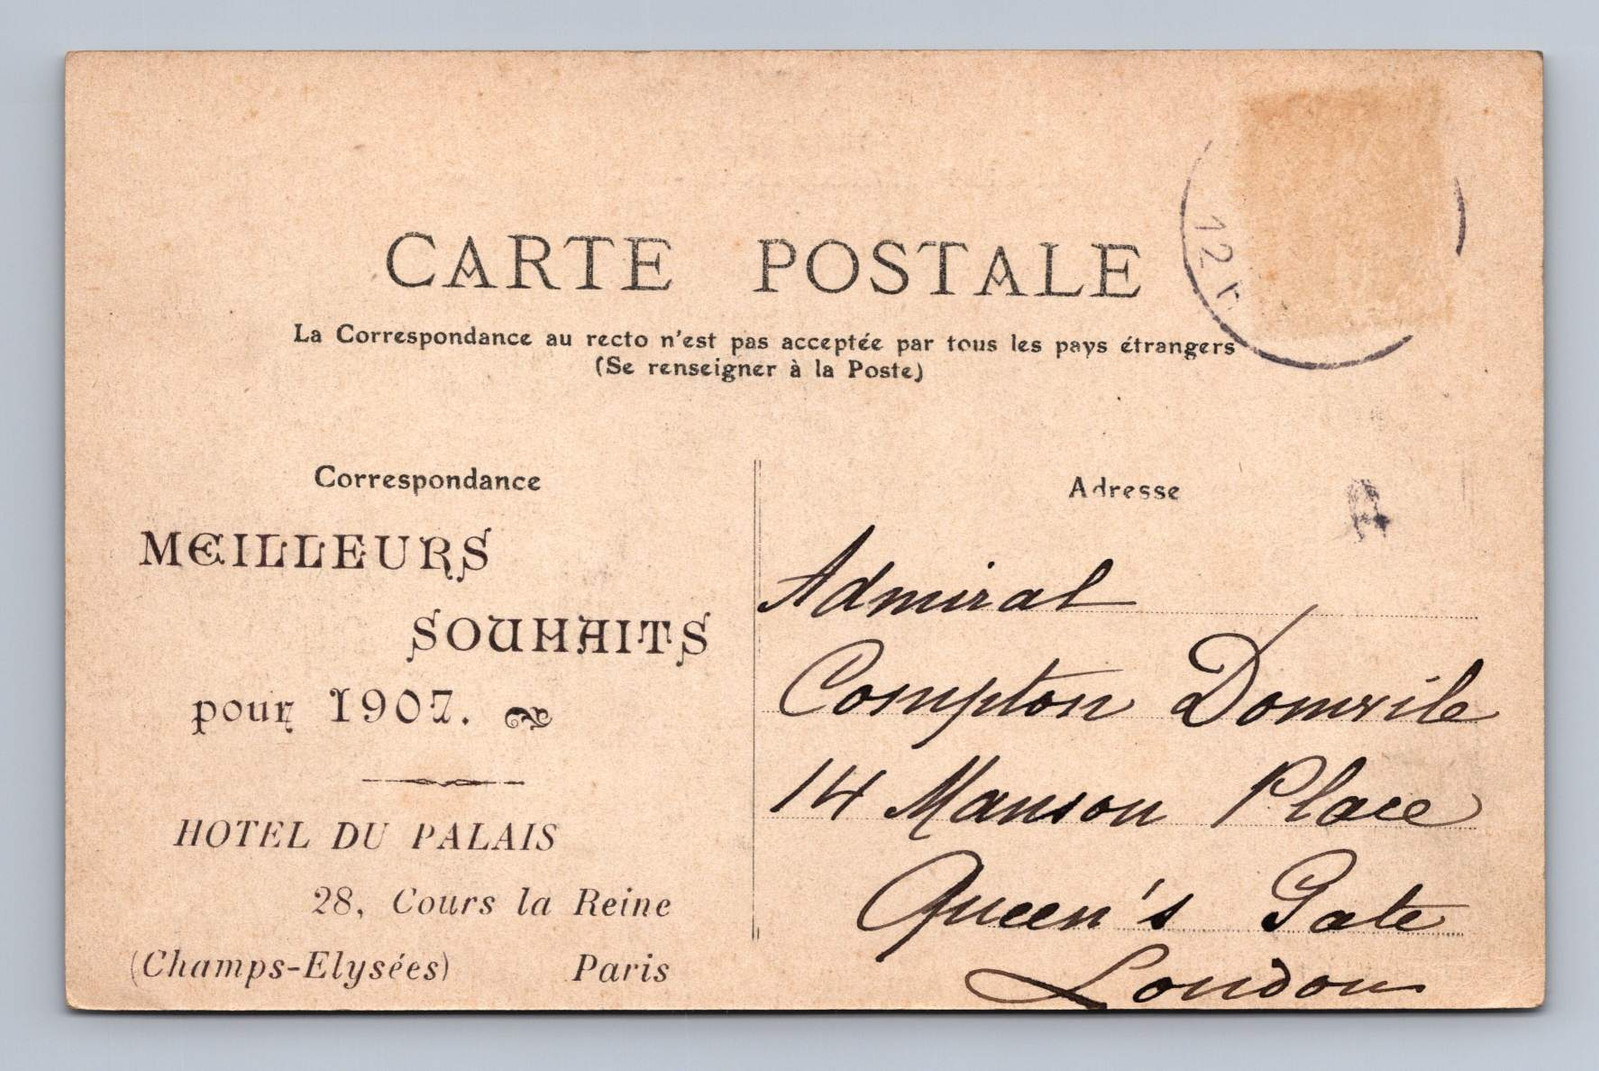 CARTE POSTALE
La Correspondance au recto n'est pas acceptée par tous les pays étrangers
(Se renseigner à la Poste)
Correspondance
MEILLEURS
SOUHAITS
pour 1907.
HOTEL DU PALAIS
28, Cours la Reine
(Champs-Elysées) Paris
Adresse
Admiral
Compton Domvile
14 Manson Place
Queen's Gate
London
12